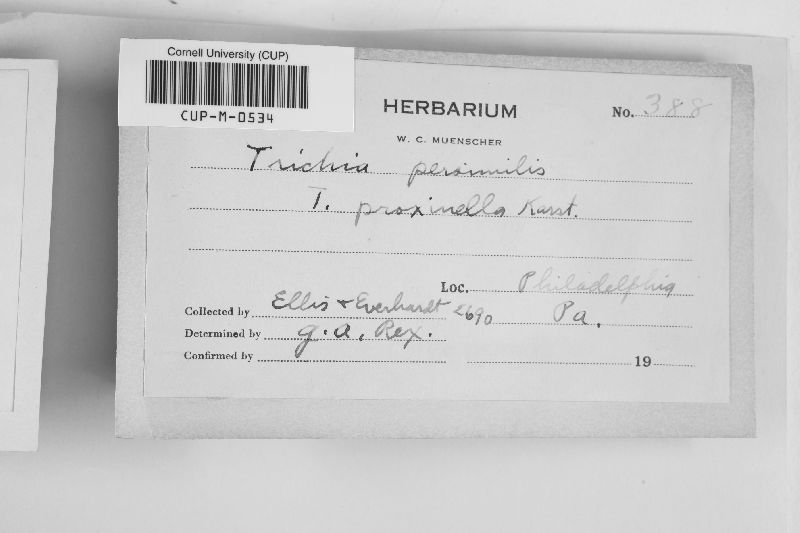 Cornell University (CUP)
CUP-M-0534
HERBARIUM
No. 388
W. C. MUENSCHER
Trichia persimilis
T. proxinella Karst.
Loc. Philadelphia
Collected by Ellis & Everhardt 2690 Pa.
Determined by G. A. Rex.
Confirmed by 19